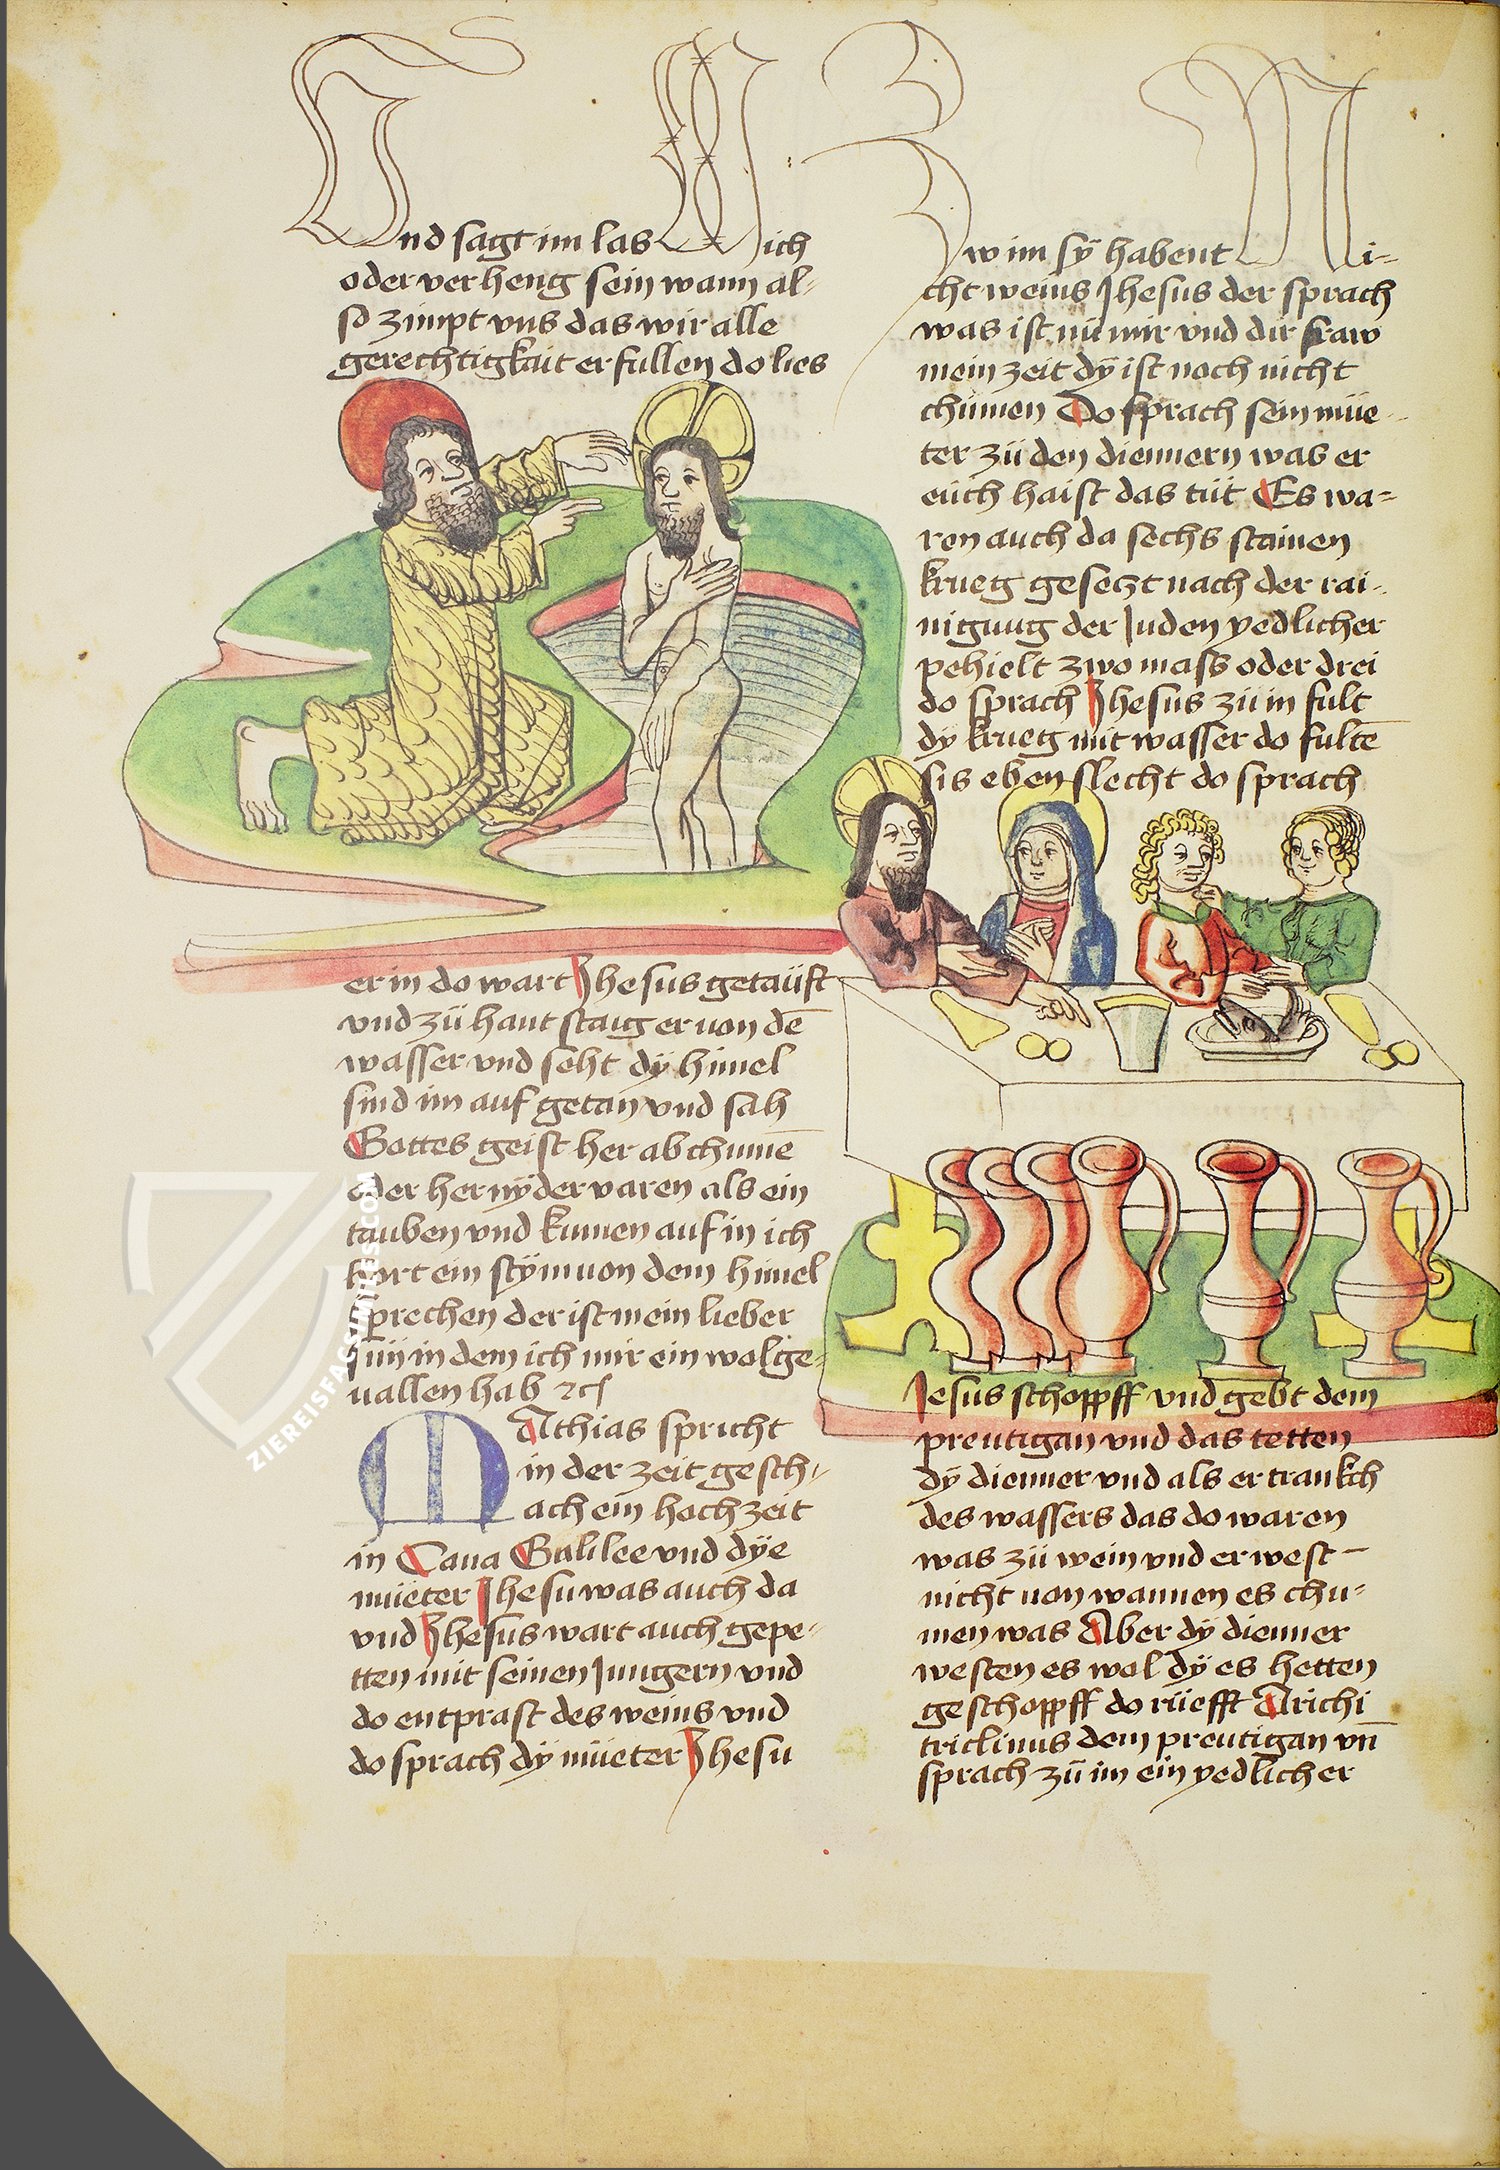 Vnd sagt im las Mich
oder verheng sein wann al-
so zimpt vns das wir alle
gerechtigkait erfullen do lies
er in do wart Jhesus getaüft
vnd zü hant staig er von dē
wasser vnd seht dÿ himel
sind im auf getan vnd sah
Gottes geist her ab chumē
oder her nÿder varen als ein
tauben vnd kumen auf in ich
hort ein stÿm von dem himel
sprechen der ist mein lieber
sun in dem ich mir ein wolge-
uallen hab
MAthias spricht
in der zeit gesch-
ach ein hochzeit
in Cana Galilee vnd dÿe
müeter Jhesu was auch da
vnd Jhesus wart auch gepe-
tten mit seinen Jungern vnd
do entprast des weins vnd
do sprach dÿ müeter Jhesu
Zw im sÿ habent Ni-
cht weins Jhesus der sprach
was ist nü mir vnd dir fraw
mein zeit dÿ ist noch nicht
chümen Do sprach sein müe-
ter zü den diennern was er
eüch haist das tüt Es wa-
ren auch da sechs stainen
krueg gesetzt nach der rai-
nigung der Juden yedlicher
pehielt zwo mass oder drei
do sprach Jhesus zü in fult
dy krueg mit wasser do fultē
sis eben slecht do sprach
Jesus schoppff vnd gebt dem
preutigan vnd das tetten
dÿ dienner vnd als er trankch
des wassers das do waren
was zü wein vnd er west
nicht von wannen es chu-
men was Aber dÿ dienner
westen es wol dÿ es hetten
geschoppff do rüefft Arichi
triclinus dem preutigan vn̄
sprach zü im ein yedlicher
ZIEREISFACSIMILES.COM